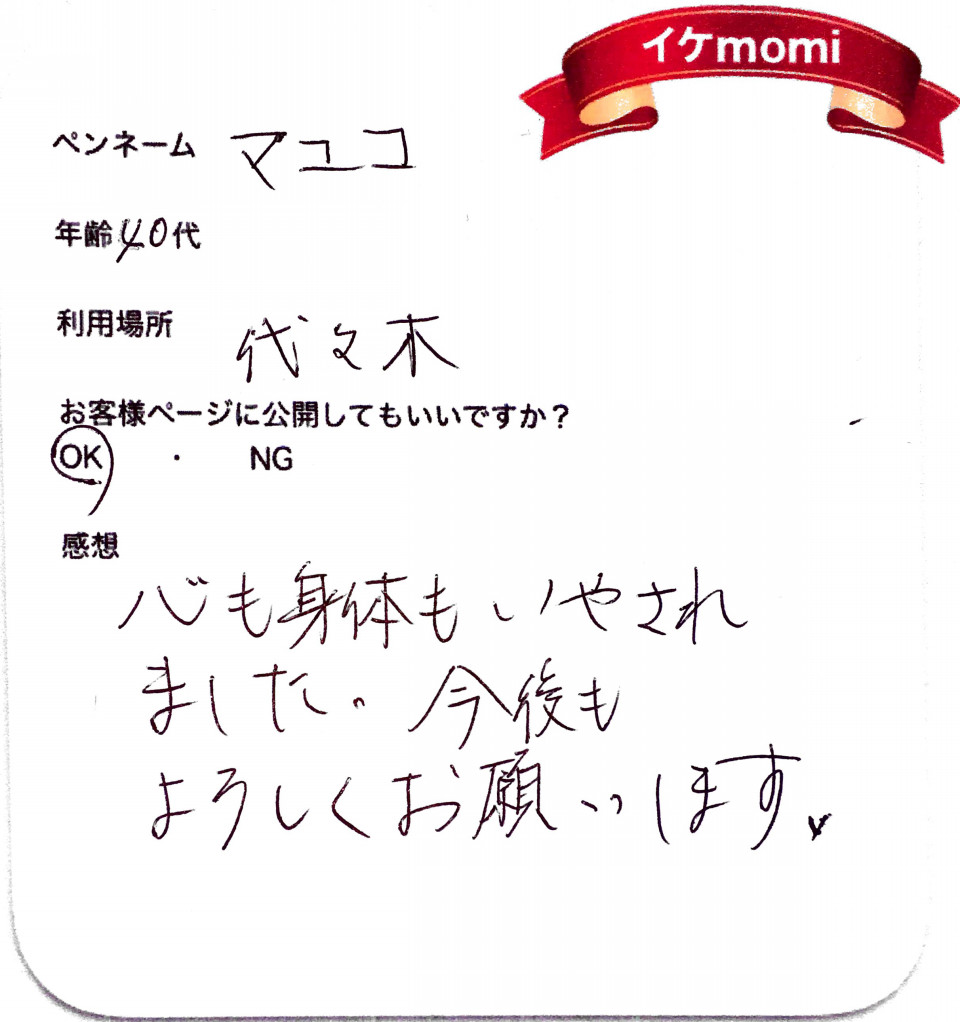 イケmomi
ペンネーム マユコ
年齢 40代
利用場所 代々木
お客様ページに公開してもいいですか？
OK ・ NG
感想
心も身体もいやされ
ました。今後も
よろしくお願いします。